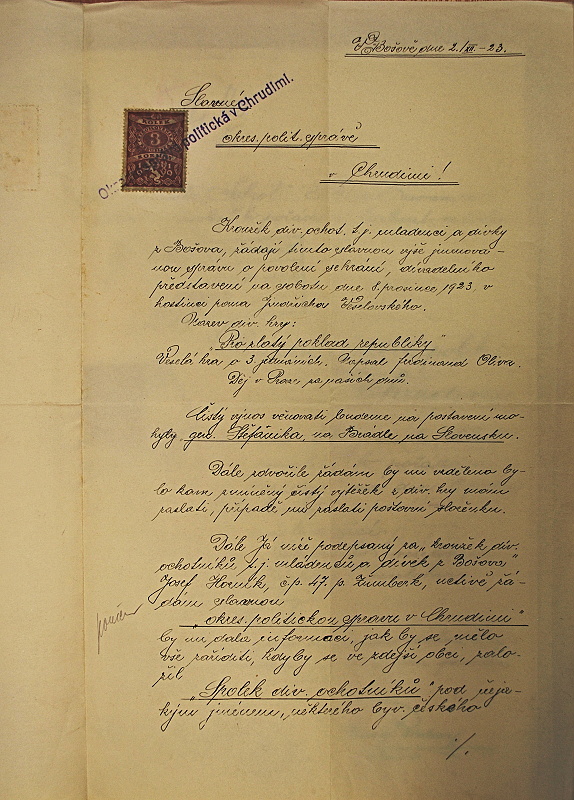 V Bošově, dne 2./XII.-23.
Slavné
okres. polit. správě
v Chrudimi!
politická v Chrudimi.
KOLEK
3
Kroužek div. ochot. t.j. mládenci a dívky
z Bošova, žádají tímto slavnou výše jmenova-
nou správu o povolení sehrání, divadelního
představení na sobotu dne 8. prosince 1923, v
hostinci pana Jindřicha Veselovského.
Název div. hry:
"Pro zlatý poklad republiky"
Veselá hra o 3. jednáních. Napsal Ferdinand Oliva.
Děj v Praze za našich dnů.
Čistý výnos věnovati budeme na postavení mo-
hyly, gen. Štefánika, na Bradle na Slovensku.
Dále zdvořile žádám by mi sděleno by-
lo kam zmíněný čistý výtěžek z div. hry mám
zaslati, případě mi zaslati poštovní složenku.
Dále Já níže podepsaný za "Kroužek div.
ochotníků t.j. mládenců a dívek z Bošova"
Josef Horník, č.p. 47. p. Žumberk, uctivě žá-
dám slavnou
"okres. politickou správu v Chrudimi"
by mi dala informaci, jak by se mělo
vše zaříditi, kdyby se ve zdejší obci, zalo-
žil
"Spolek div. ochotníků" pod něja-
kým jménem, některého býv. českého
./.